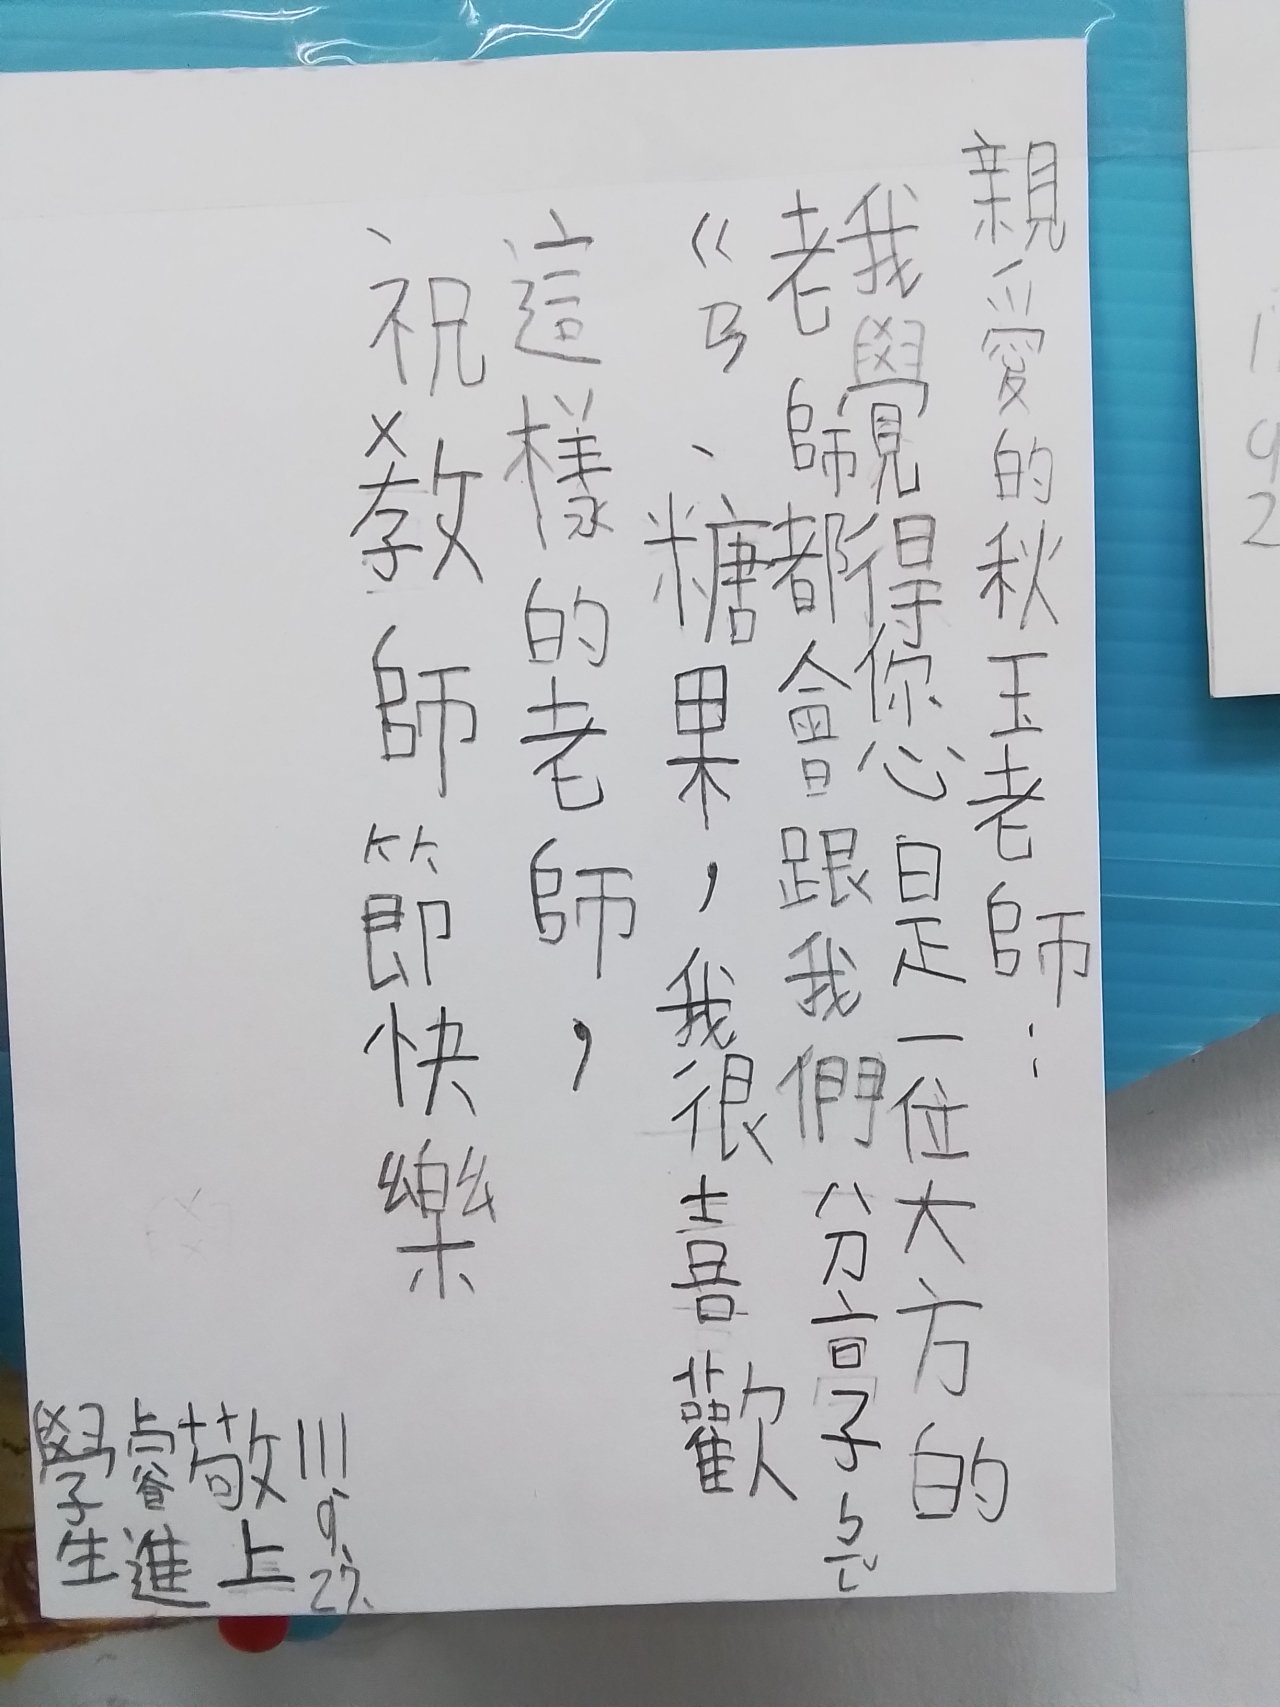 親愛的秋玉老師：
我覺得您是一位大方的
老師都會跟我們分享ㄅㄧㄥˇ
ㄍㄢ、糖果，我很喜歡
這樣的老師，
祝教師節快樂
學生
睿進
敬上
111.9.27.